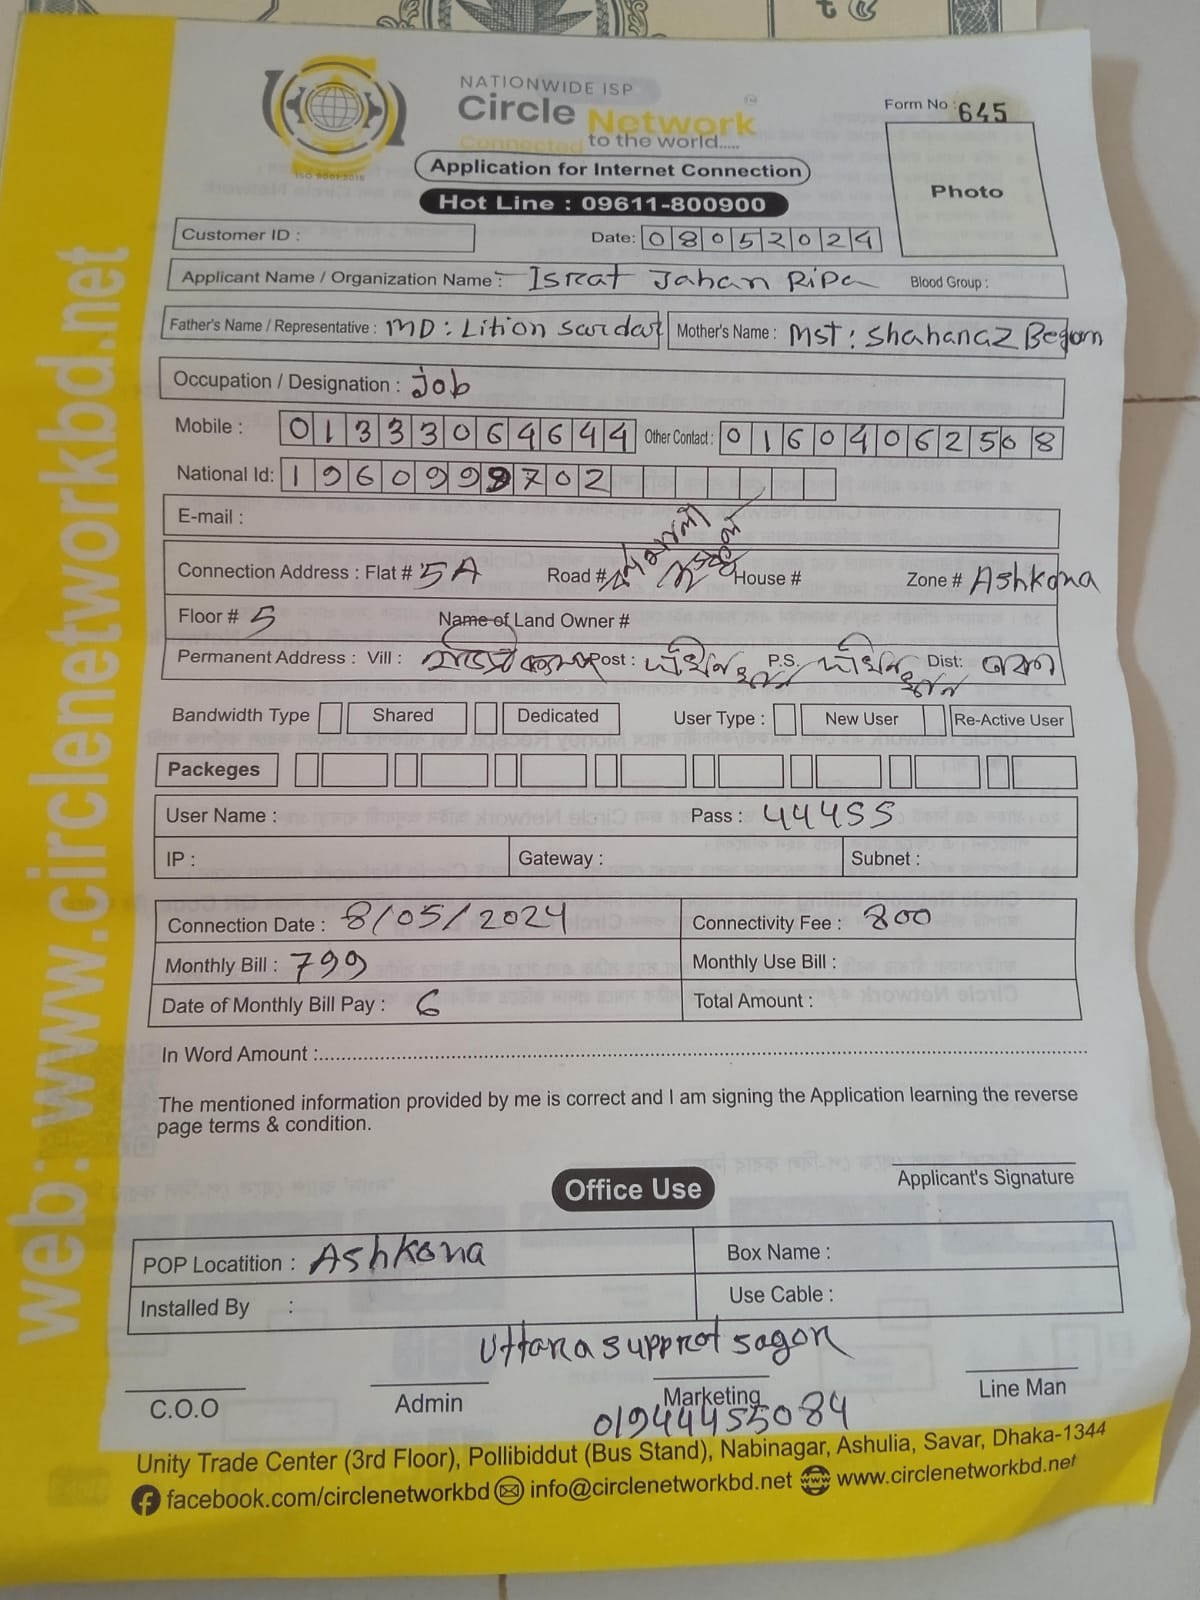 NATIONWIDE ISP
Circle Network
Connected to the world.....
ISO 9001:2015
Form No : 645
Application for Internet Connection
Photo
Hot Line : 09611-800900
Customer ID :
Date: 08052024
Applicant Name / Organization Name : Israt Jahan Ripa Blood Group :
Father's Name / Representative : MD : Lition Sardar Mother's Name : Mst : Shahanaz Begom
Occupation / Designation : Job
Mobile : 01333064644 Other Contact : 01604062508
National Id: 1960999702
E-mail :
Connection Address : Flat # 5A Road # House # Zone # Ashkona
Floor # 5 Name of Land Owner #
Permanent Address : Vill : Post : দক্ষিনখান P.S. দক্ষিনখান Dist: ঢাকা
Bandwidth Type Shared Dedicated User Type : New User Re-Active User
Packeges
User Name : Pass : 44455
IP : Gateway : Subnet :
Connection Date : 8/05/2024 Connectivity Fee : 800
Monthly Bill : 799 Monthly Use Bill :
Date of Monthly Bill Pay : 6 Total Amount :
In Word Amount :
The mentioned information provided by me is correct and I am signing the Application learning the reverse
page terms & condition.
Applicant's Signature
Office Use
POP Locatition : Ashkona Box Name :
Installed By : Use Cable :
Uttara supprot sagor
C.O.O Admin Marketing Line Man
01944455084
Unity Trade Center (3rd Floor), Pollibiddut (Bus Stand), Nabinagar, Ashulia, Savar, Dhaka-1344
facebook.com/circlenetworkbd info@circlenetworkbd.net www.circlenetworkbd.net
web: www.circlenetworkbd.net